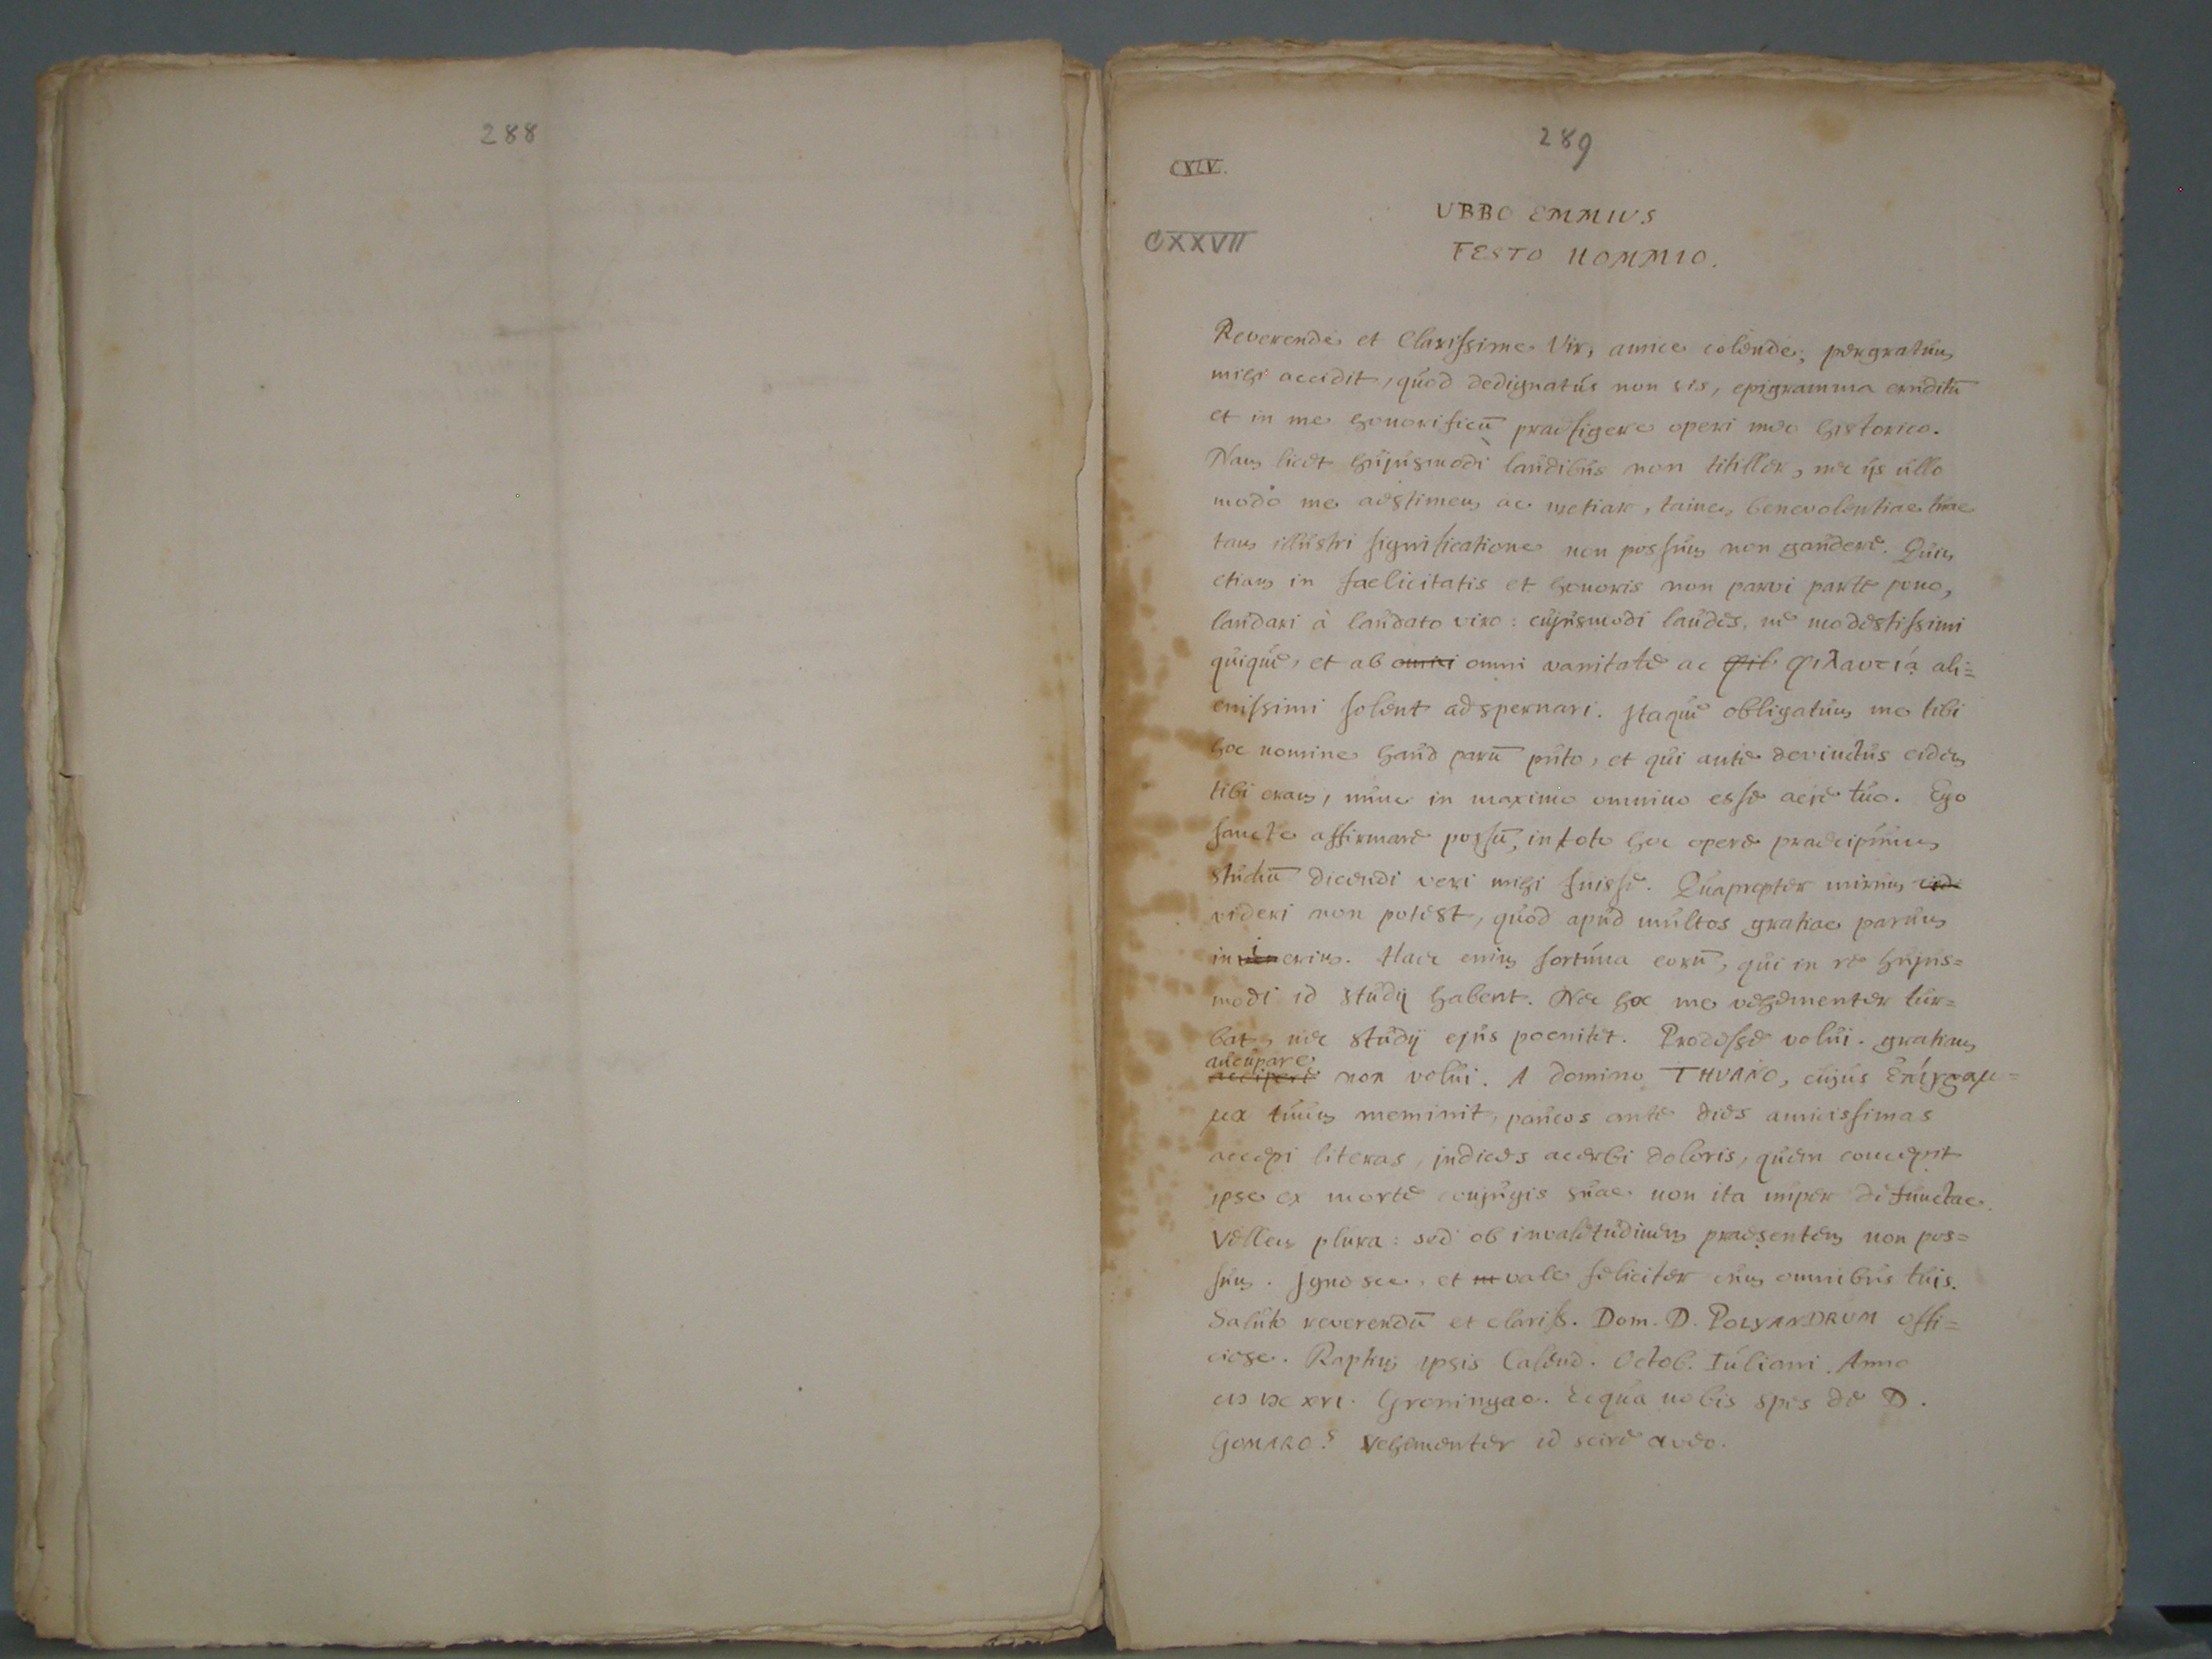 288
289
CXLV.
CXXVII
UBBO EMMIUS
FESTO HOMMIO.
Reverende et Clarissime Vir, amice colende; pergratum
mihi accidit, quod dedignatus non sis, epigramma eruditū
et in me honorificū praefigere operi meo historico.
Nam licet hujusmodi laudibus non titiller, nec ijs ullo
modo me aestimem ac metiar, tamen benevolentiae tuae
tam illustri significatione non possum non gaudere. Quin
etiam in faelicitatis et honoris non parvi parte pono,
laudari à laudato viro: cujusmodi laudes, ne modestissimi
quique, et ab omni omni vanitate ac φιλ φιλαυτίᾳ ali=
enissimi solent adspernari. Itaque obligatum me tibi
hoc nomine haud parū puto, et qui ante devinctus eidem
tibi eram, nunc in maximo omnino esse aere tuo. Ego
sancte affirmare possū, in toto hoc opere praecipuum
studiū dicendi veri mihi fuisse. Quapropter mirum vide
videri non potest, quod apud multos gratiae parum
inierim. Haec enim fortuna eorū, qui in re hujus=
modi id studij habent. Nec hoc me vehementer tur=
bat, nec studij ejus poenitet. Prodesse volui. gratiam
aucupare
accipere non volui. A domino THUANO, cujus ἐπίγραμ=
μα tuum meminit, paucos ante dies amicissimas
accepi literas, indices acerbi doloris, quem concepit
ipse ex morte conjugis suae non ita nuper defunctae.
Vellem plura: sed ob invaletudinem praesentem non pos=
sum. Ignosce, et vale feliciter cum omnibus tuis.
Saluto reverendū et clariss. Dom. D. POLYANDRUM offi=
ciose. Raptim ipsis Calend. Octob. Iuliani. Anno
CIƆ IƆC XVI. Groningae. Ecqua nobis spes de D.
GOMARO? Vehementer id scire aveo.